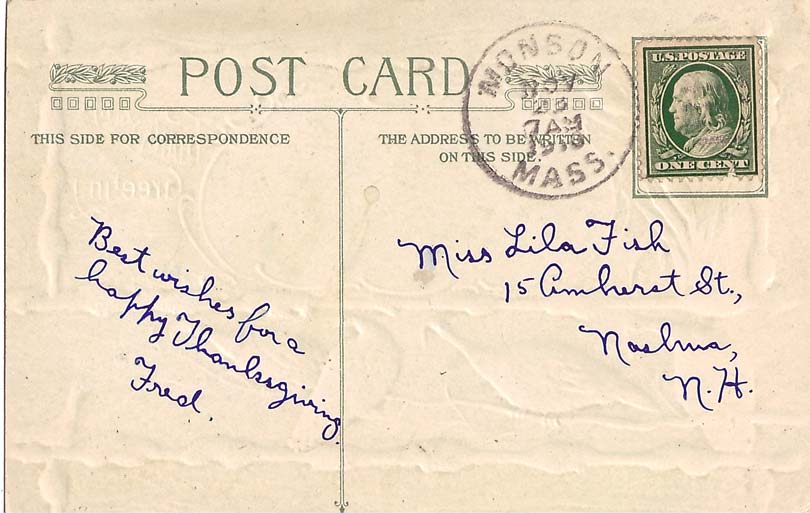 POST CARD
THIS SIDE FOR CORRESPONDENCE
THE ADDRESS TO BE WRITTEN
ON THIS SIDE.
MONSON
7 AM
MASS.
U.S. POSTAGE
ONE CENT
Best wishes for a
happy Thanksgiving.
Fred.
Miss Lila Fish
15 Amherst St.,
Nashua,
N.H.